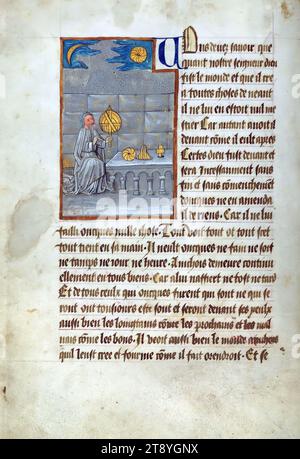 Vous deuez sauoir que
quant nostre seigneur dieu
fist le monde et que il cre
a toutes choses de neant
il ne lui en estoit nul me
stier Car autant auoit il
deuant cõme il eult apres
Certes dieu fust deuant et
sera Incessaument sans
fin et sans cõmencheme̅t
doncques ne en amenda
il de riens. Car il ne lui
failli oncques nulle chose. Tout voit tout ot tout scet
tout tient en sa main. Il neult oncques ne fain ne soif
ne temps ne iour ne heure. Ainchois demeure conti
ellement en tous biens. Car a lui naffiert ne tost ne tard
Et de tous ceulx qui oncques furent qui sont ne qui se
ront ont tousiours este sont et seront deuant ses yeulx
aussi bien les longtains cõme les prochains et les mal
uais cõme les bons. Il veoit aussi bien le monde ainchois
quil leust cree et fourme cõme il fait orendroit. Et se